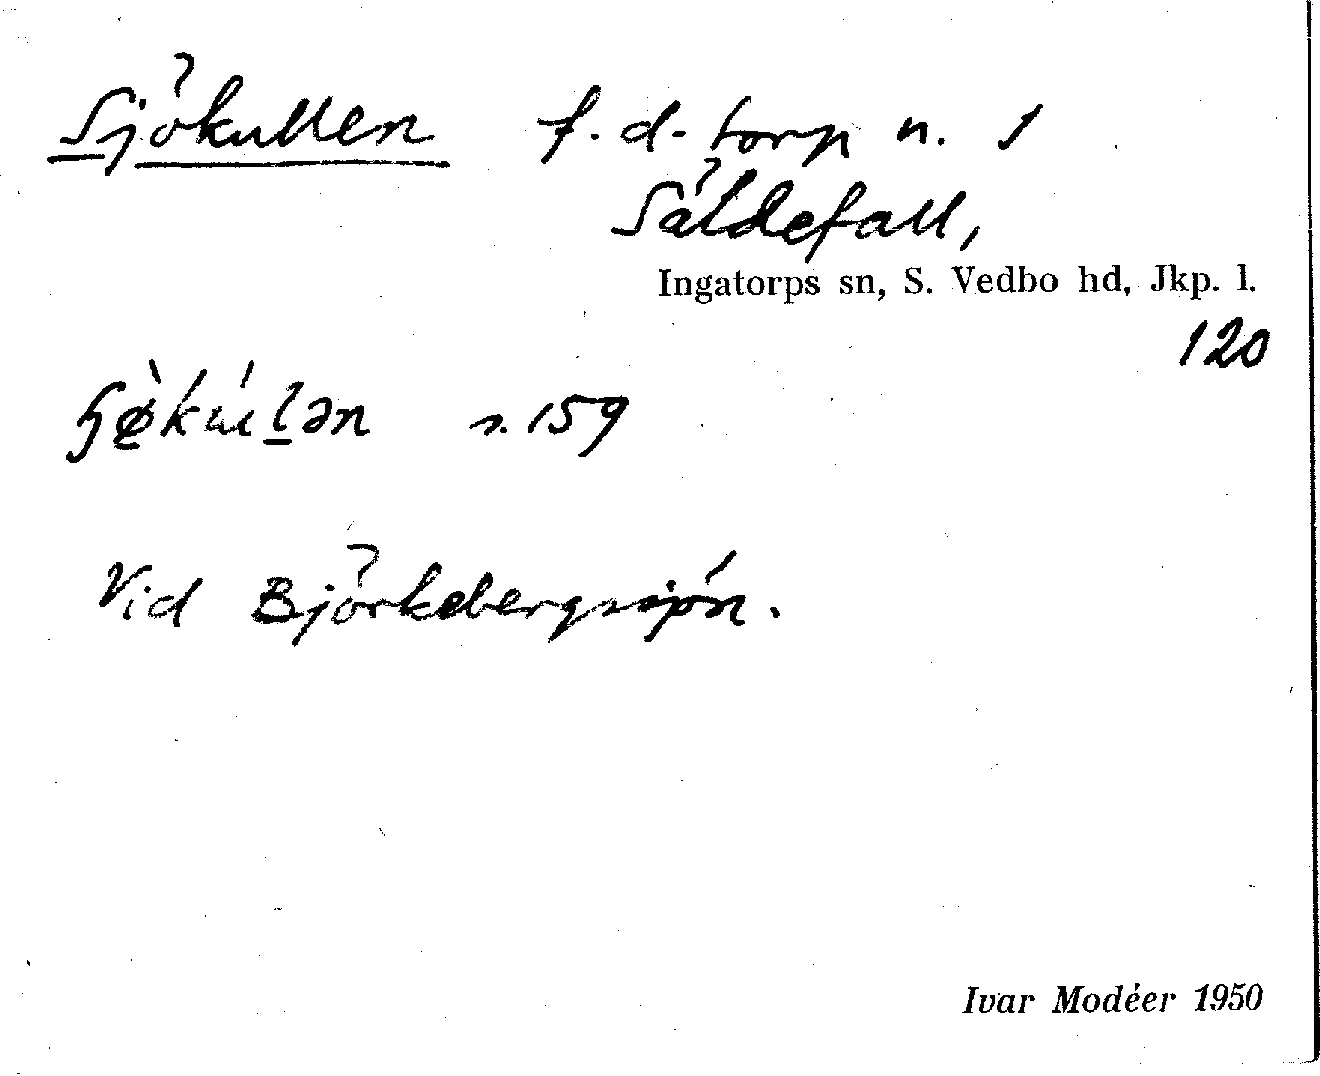 Sjökullen f.d. torp n. 1
Säldefall,
Ingatorps sn, S. Vedbo hd, Jkp. l.
120
s. 159
Vid Björkebergssjön.
Ivar Modéer 1950